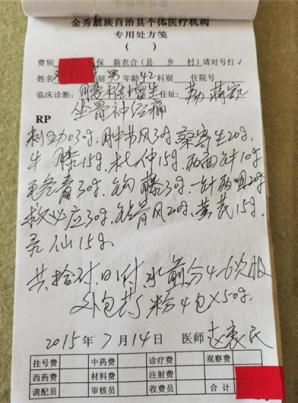 金秀瑶族自治县个体医疗机构
专用处方笺
( )
费别 保 新农合(县 乡 村)请对号打√
姓名 男 年龄 42 科别 住院号
临床诊断: 腰椎增生 住址:
坐骨神经痛
RP
30g. 肿节风30g. 桑寄生20g.
牛膝15g. 杜仲15g. 两面针10g
30g. 钩藤30g. 一针
救必应30g. 钻骨风20g. 黄芪15g.
灵仙15g.
共拾付. 日1付. 水煎分4-6次服
外包药粉4包×50g.
2015年7月14日 医师
挂号费 中药费 诊疗费 观察费
西药费 材料费 注射费
调配员 审核员 收费员 合计